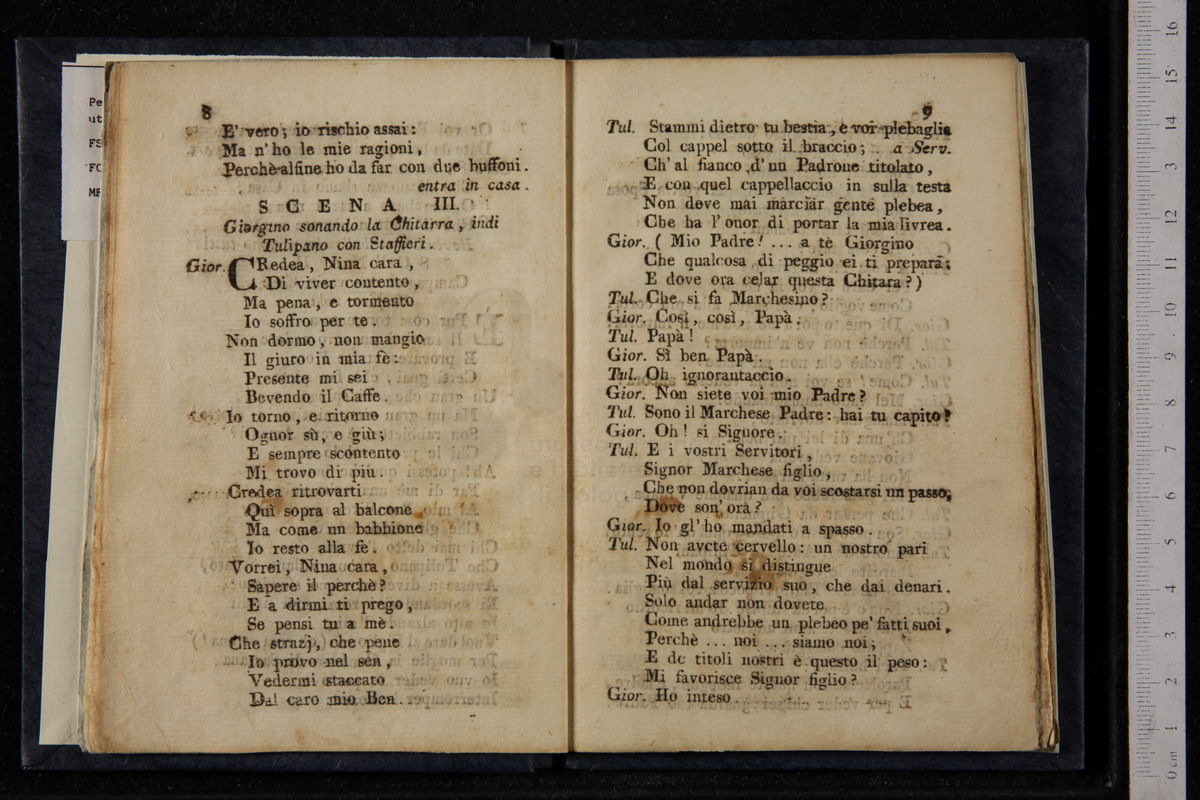 Pe
ut
FS
FC
MF
8
E' vero; io rischio assai:
Ma n' ho le mie ragioni,
Perchè alfine ho da far con due buffoni.
entra in casa.
SCENA III.
Giorgino sonando la Chitarra, indi
Tulipano con Staffieri.
Gior. CRedea, Nina cara,
Di viver contento,
Ma pena, e tormento
Io soffro per te.
Non dormo, non mangio
Il giuro in mia fè:
Presente mi sei
Bevendo il Caffe.
Io torno, e ritorno
Ognor sù, e giù;
E sempre scontento
Mi trovo di più.
Credea ritrovarti
Quì sopra al balcone
Ma come un babbione
Io resto alla fè.
Vorrei, Nina cara,
Sapere il perchè?
E a dirmi ti prego,
Se pensi tu a mè.
Che strazj, che pene
Io provo nel sen,
Vedermi staccato
Dal caro mio Ben.
9
Tul. Stammi dietro tu bestia, e voi plebaglia
Col cappel sotto il braccio; a Serv.
Ch' al fianco d' un Padrone titolato,
E con quel cappellaccio in sulla testa
Non deve mai marciar gente plebea,
Che ha l' onor di portar la mia livrea.
Gior. ( Mio Padre! ... a tè Giorgino
Che qualcosa di peggio ei ti prepara;
E dove ora celar questa Chitara?)
Tul. Che si fa Marchesino?
Gior. Così, così, Papà.
Tul. Papà!
Gior. Sì ben Papà.
Tul. Oh ignorantaccio.
Gior. Non siete voi mio Padre?
Tul. Sono il Marchese Padre: hai tu capito?
Gior. Oh! si Signore.
Tul. E i vostri Servitori,
Signor Marchese figlio,
Che non dovrian da voi scostarsi un passo,
Dove son' ora?
Gior. Io gl' ho mandati a spasso.
Tul. Non avete cervello: un nostro pari
Nel mondo si distingue
Più dal servizio suo, che dai denari.
Solo andar non dovete
Come andrebbe un plebeo pe' fatti suoi,
Perchè ... noi ... siamo noi;
E de titoli nostri è questo il peso:
Mi favorisce Signor figlio?
Gior. Ho inteso.
0 cm 1 2 3 4 5 6 7 8 9 10 11 12 13 14 15 16